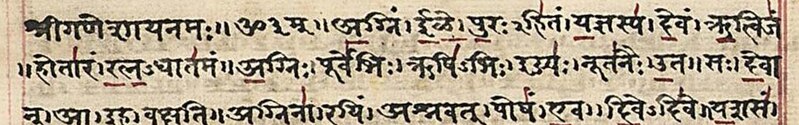 श्रीगणेशायनमः॥ॐ३म्॥अ॒ग्निं।ई॒ळे॒।पु॒रःऽहि॑तं।य॒ज्ञस्य॑।दे॒वं।ऋ॒त्विजं॑
॥होता॑रं।र॒त्न॒ऽधात॑मं॥अ॒ग्निः।पूर्वे॑भिः।ऋषि॑ऽभिः।ईड्यः॑।नूत॑नैः।उ॒त॥सः।दे॒वा
न्।आ।इ॒ह।व॒क्ष॒ति॒॥अ॒ग्निना॑।र॒यिं।अ॒श्न॒व॒त्।पोषं॑।ए॒व।दि॒वेऽदि॑वे॥य॒शसं॑